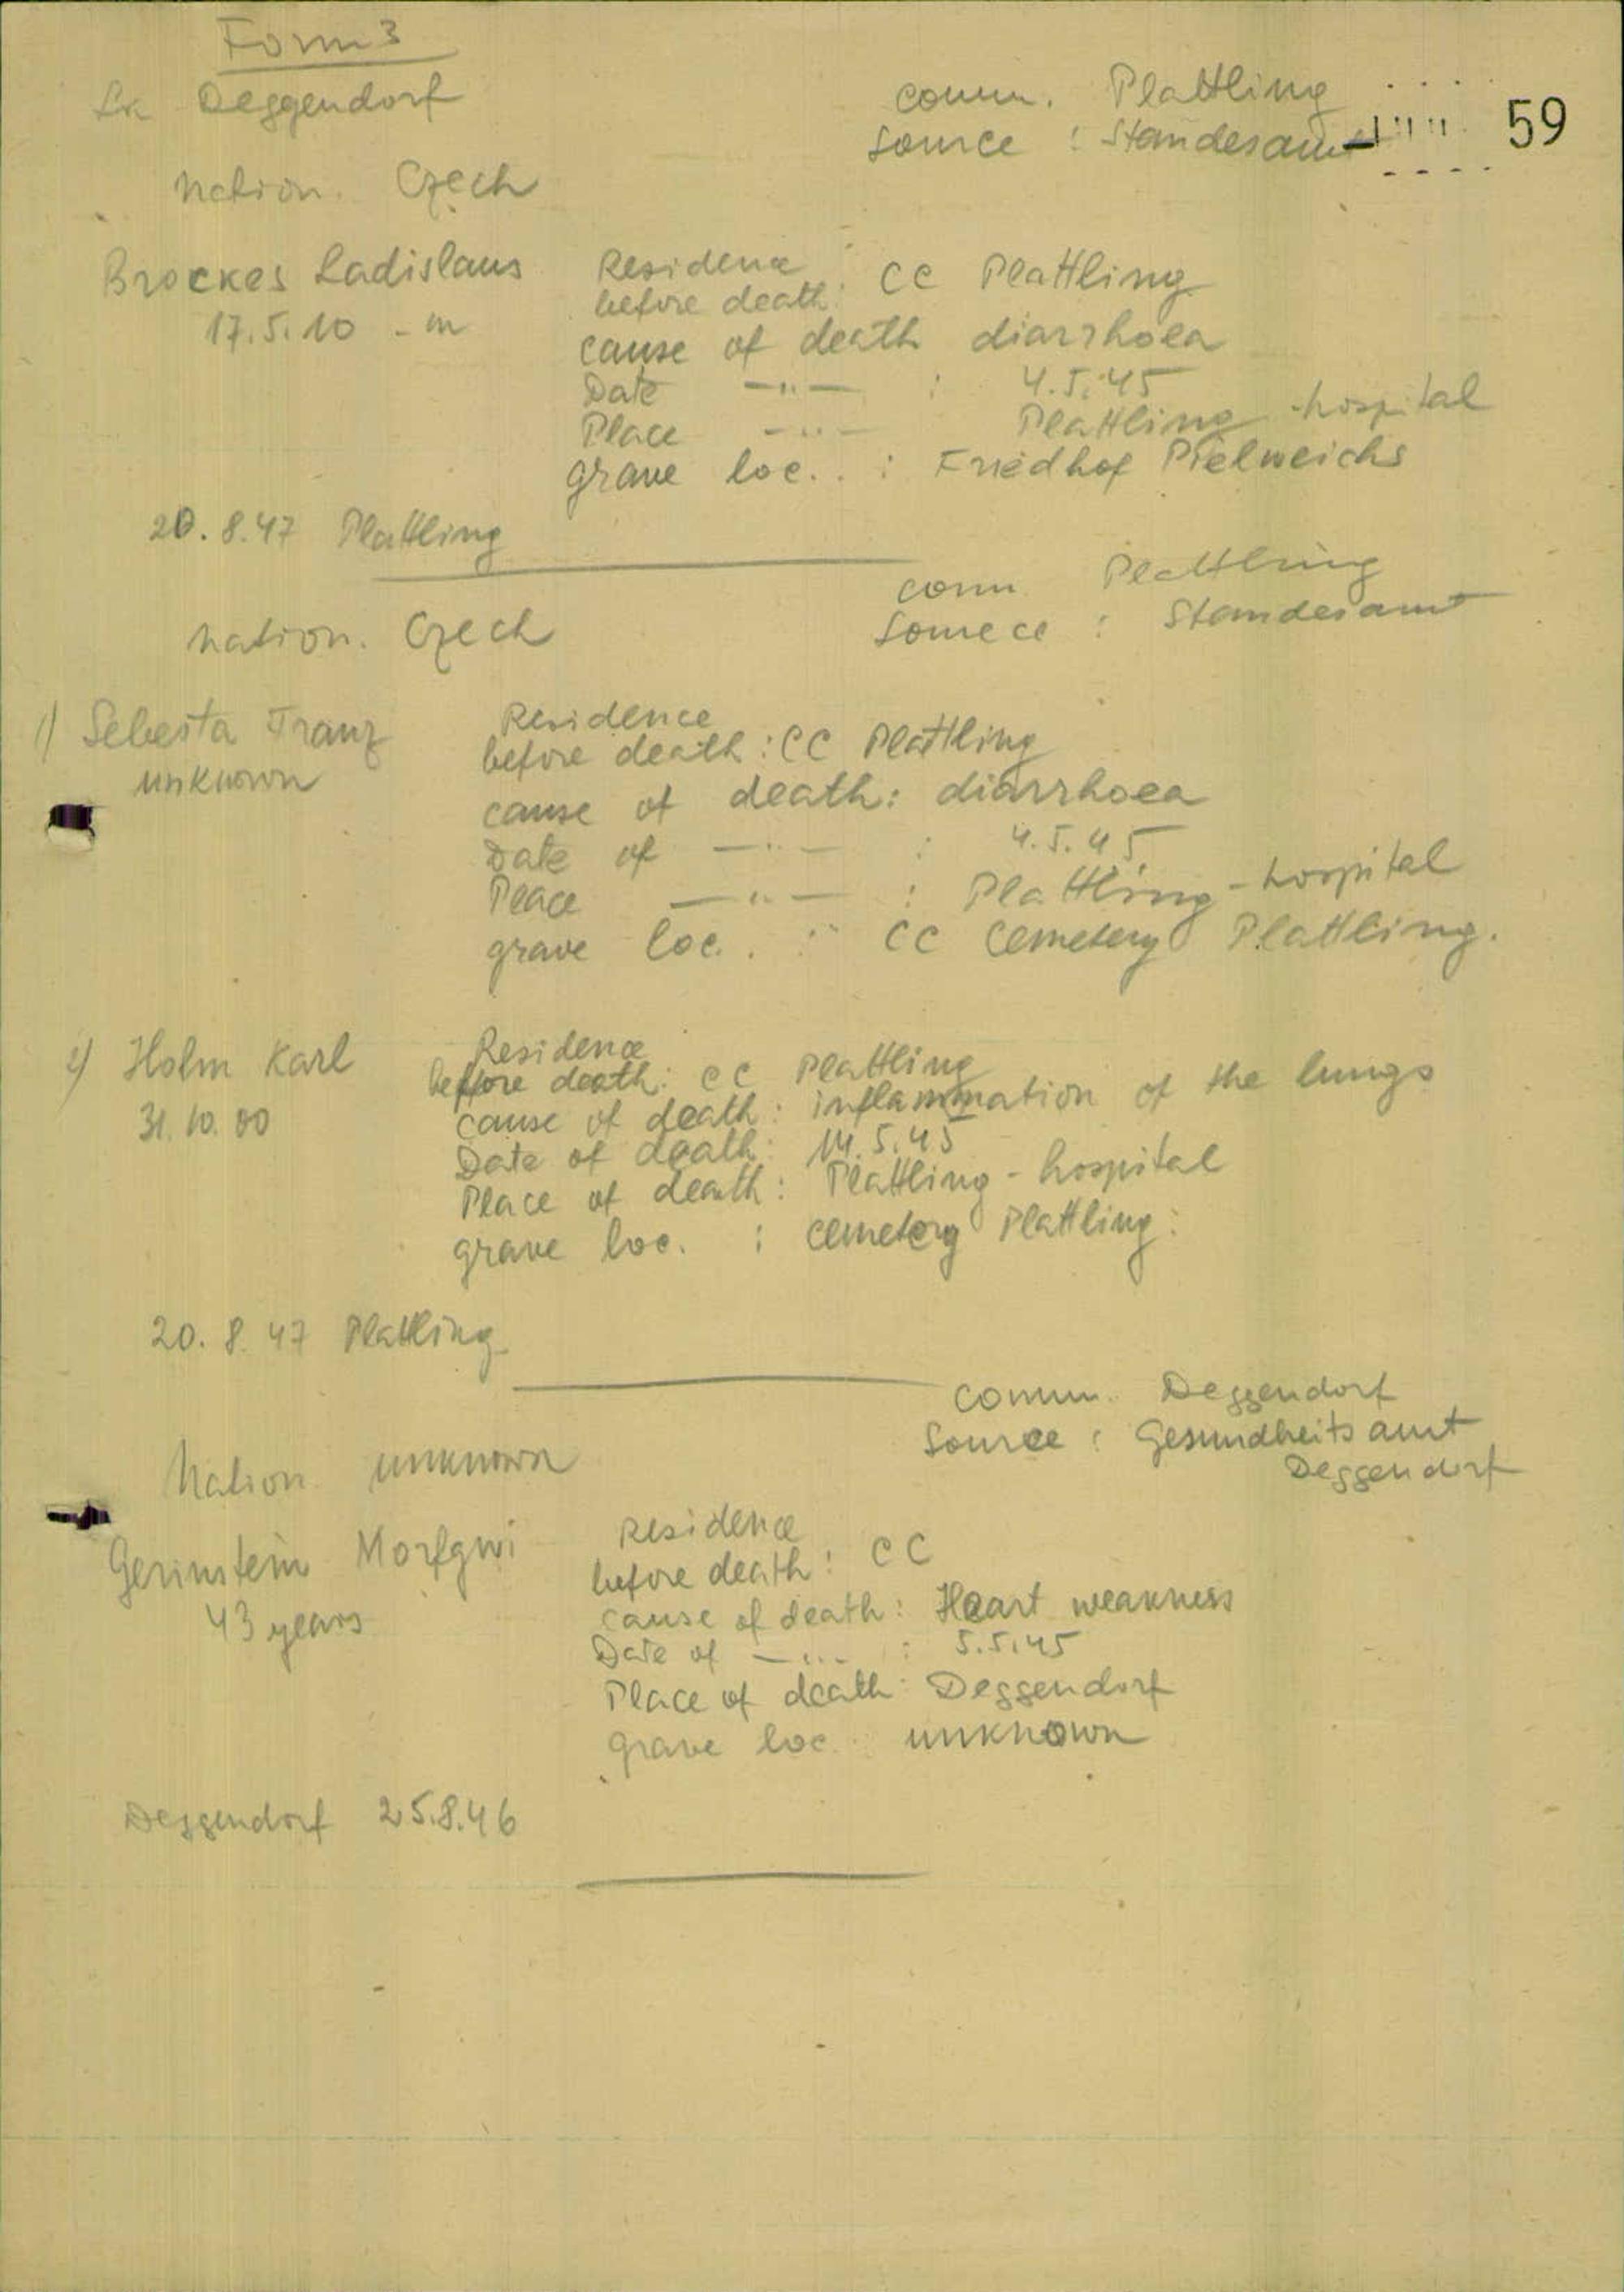 Form 3
Lk Deggendorf
comm. Plattling
Source : Standesamt
59
Nation. Czech
Brockes Ladislaus
17.5.10 - m
Residence
before death : CC Plattling
cause of death diarrhoea
Date —"— : 4.5.45
Place —"— Plattling - hospital
grave loc. . : Friedhof Pielweichs
20.8.47 Plattling
comm. Plattling
Source : Standesamt
Nation. Czech
1) Sebesta Franz
unknown
Residence
before death : CC Plattling
cause of death : diarrhoea
Date of —"— : 4.5.45
Place —"— : Plattling - hospital
grave loc. . : CC Cemetery Plattling.
2) Holm Karl
31.10.00
Residence
before death : CC Plattling
cause of death : inflammation of the lungs
Date of death : 14.5.45
Place of death : Plattling - hospital
grave loc. : cemetery Plattling.
20.8.47 Plattling
comm. Deggendorf
Source : Gesundheitsamt
Deggendorf
Nation unknown
Gerinstein Morfgwi
43 years
Residence
before death : CC
cause of death : Heart weakness
Date of —"— : 5.5.45
Place of death : Deggendorf
grave loc. unknown
Deggendorf 25.8.46